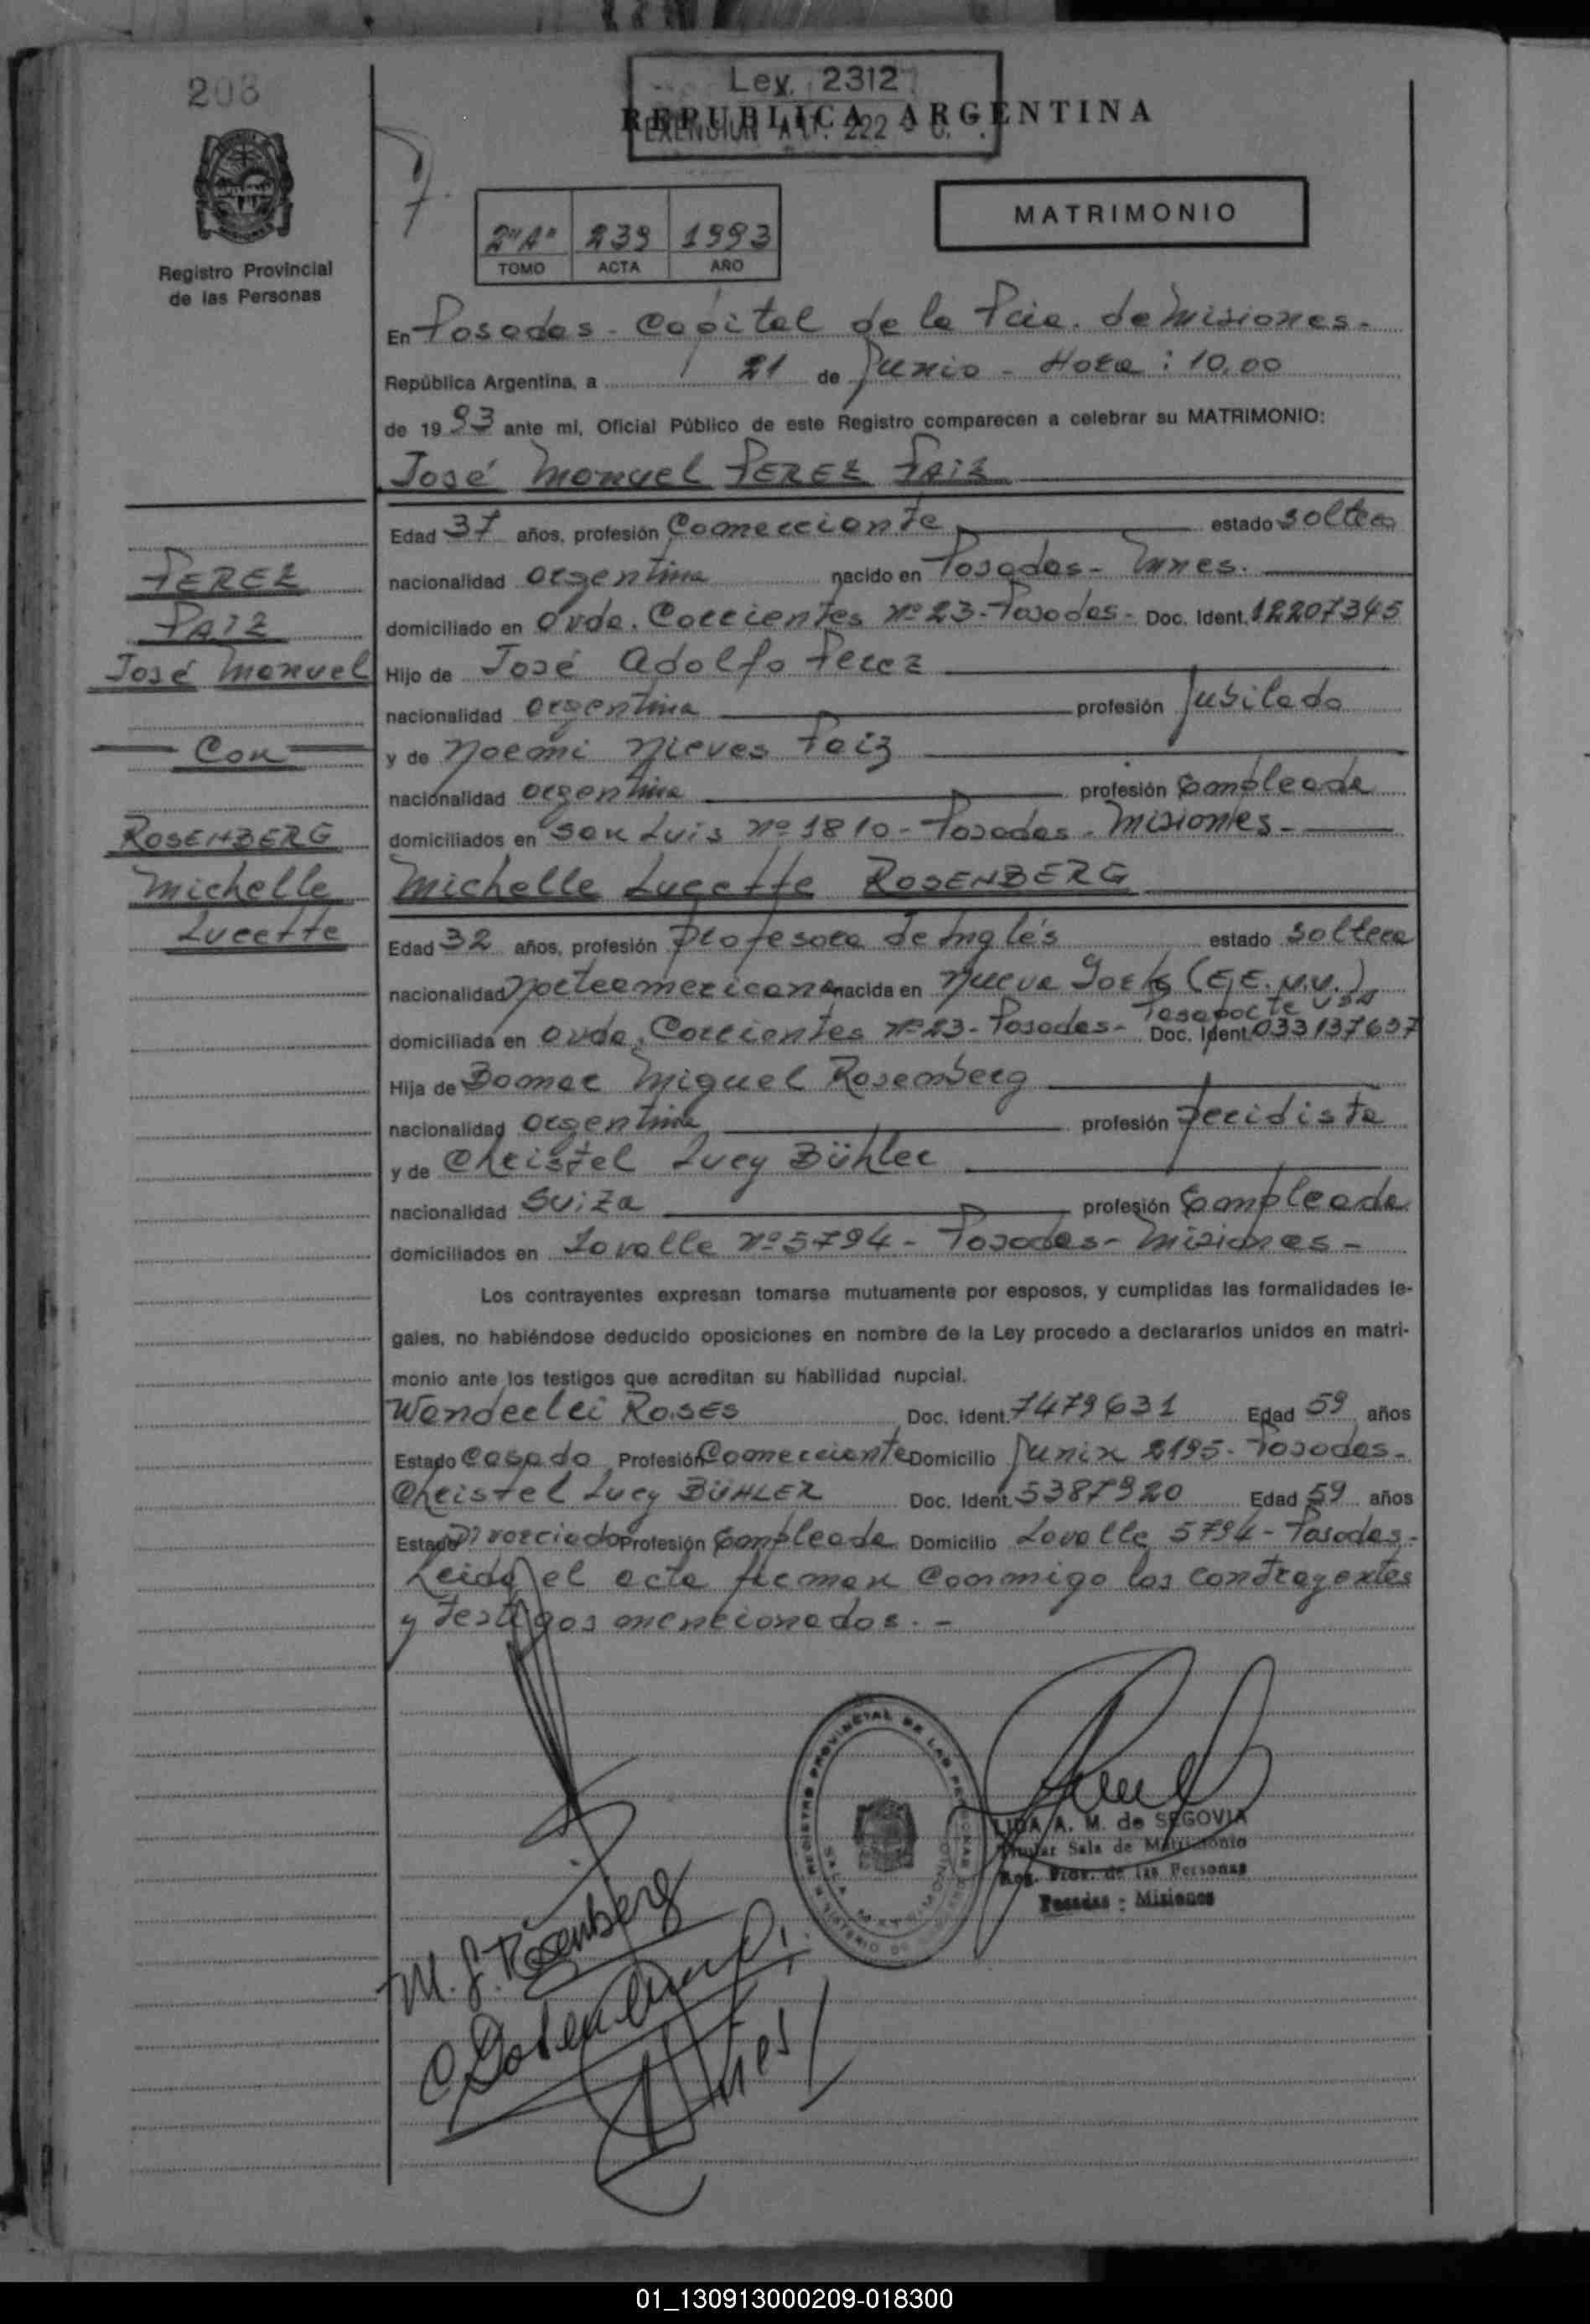 208
Ley. 2312
EXENCION Art. 222 - C.
REPUBLICA ARGENTINA
MATRIMONIO
2"A" 239 1993
TOMO ACTA AÑO
Registro Provincial
de las Personas
En Posadas - Capital de la Pcia. de Misiones.
República Argentina, a 21 de Junio - Hora : 10,00
de 1993 ante mí, Oficial Público de este Registro comparecen a celebrar su MATRIMONIO:
José Manuel PEREZ PAIZ
Edad 37 años, profesión Comerciante estado soltero
nacionalidad argentina nacido en Posadas - Mnes.
domiciliado en Avda. Corrientes Nº 23 - Posadas - Doc. Ident. 12207345
Hijo de José Adolfo Perez
nacionalidad argentina profesión Jubilado
y de Noemi Nieves Paiz
nacionalidad argentina profesión Empleada
domiciliados en San Luis Nº 1810 - Posadas - Misiones -
Michelle Lucette ROSENBERG
Edad 32 años, profesión Profesora de Inglés estado soltera
nacionalidad norteamericana nacida en Nueva York (E.E.U.U.)
Pasaporte USA
domiciliada en Avda. Corrientes Nº 23 - Posadas - Doc. Ident. 033137657
Hija de Bomar Miguel Rosemberg
nacionalidad argentina profesión Periodista
y de Christel Lucy Bühler
nacionalidad Suiza profesión Empleada
domiciliados en Lavalle Nº 5794 - Posadas - Misiones -
Los contrayentes expresan tomarse mutuamente por esposos, y cumplidas las formalidades le-
gales, no habiéndose deducido oposiciones en nombre de la Ley procedo a declararlos unidos en matri-
monio ante los testigos que acreditan su habilidad nupcial.
Wanderlei ROSES Doc. Ident. 7479631 Edad 59 años
Estado Casado Profesión Comerciante Domicilio Junin 2195 - Posadas -
Christel Lucy BÜHLER Doc. Ident. 5387920 Edad 59 años
Estado Divorciado Profesión Empleada Domicilio Lavalle 5794 - Posadas -
Leida el acta firman conmigo los contrayentes
y testigos mencionados. -
PEREZ
PAIZ
José Manuel
Con
ROSENBERG
Michelle
Lucette
REGISTRO PROVINCIAL DE LAS PERSONAS
LIDA A. M. de SEGOVIA
Titular Sala de Matrimonio
Reg. Prov. de las Personas
Posadas : Misiones
M. L. Rosenberg
01_130913000209-018300